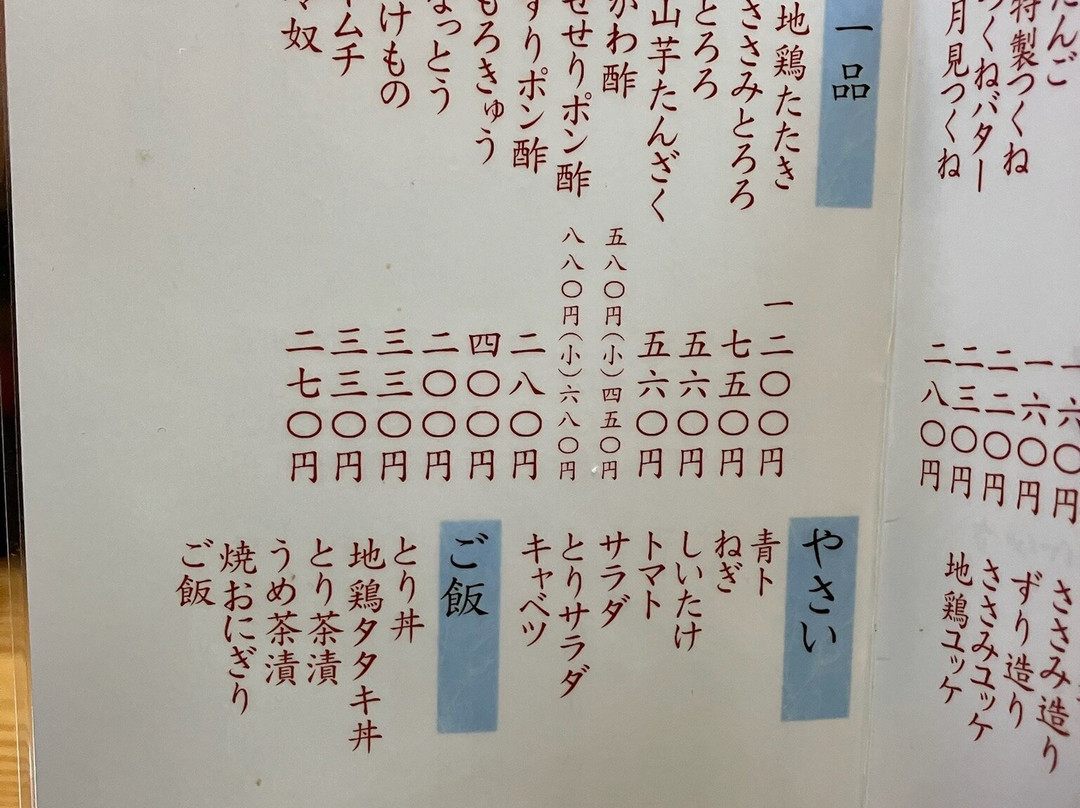 んご
特製つくね
つくねバター
月見つくね
一六〇円
一六〇円
二二〇円
二三〇円
二八〇円
ささみ造り
ずり造り
ささみユッケ
地鶏ユッケ
一品
地鶏たたき 一二〇〇円
ささみとろろ 七五〇円
とろろ 五六〇円
山芋たんざく 五六〇円
かわ酢 五八〇円(小)四五〇円
せせりポン酢 八八〇円(小)六八〇円
ずりポン酢 二八〇円
もろきゅう 四〇〇円
なっとう 二〇〇円
けもの 三三〇円
ムチ 三三〇円
奴 二七〇円
やさい
青ト
ねぎ
しいたけ
トマト
サラダ
とりサラダ
キャベツ
ご飯
とり丼
地鶏タタキ丼
とり茶漬
うめ茶漬
焼おにぎり
ご飯